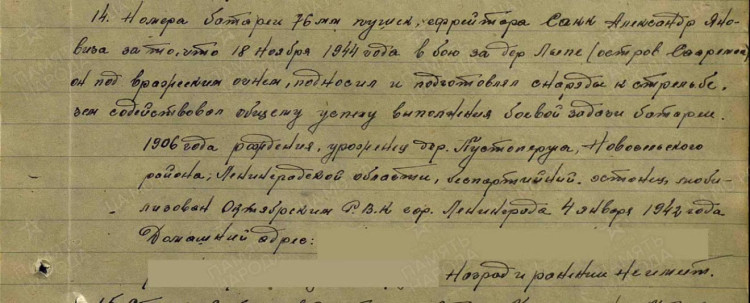 14. Номера батареи 76 мм пушек, ефрейтора Санк Александр Яно-
вича за то, что 18 ноября 1944 года в бою за дер. Лыпе (остров Саарема)
он под вражеским огнем, подносил и подготовлял снаряды к стрельбе,
чем содействовал общему успеху выполнения боевой задачи батареи.
1906 года рождения, уроженец дер. Пустоперужа, Новосельского
района, Ленинградской области, беспартийный. эстонец, моби-
лизован Октябрьским Р.В.К гор. Ленинграда 4 января 1942 года
Домашний адрес:
Наград и ранении не имеет.